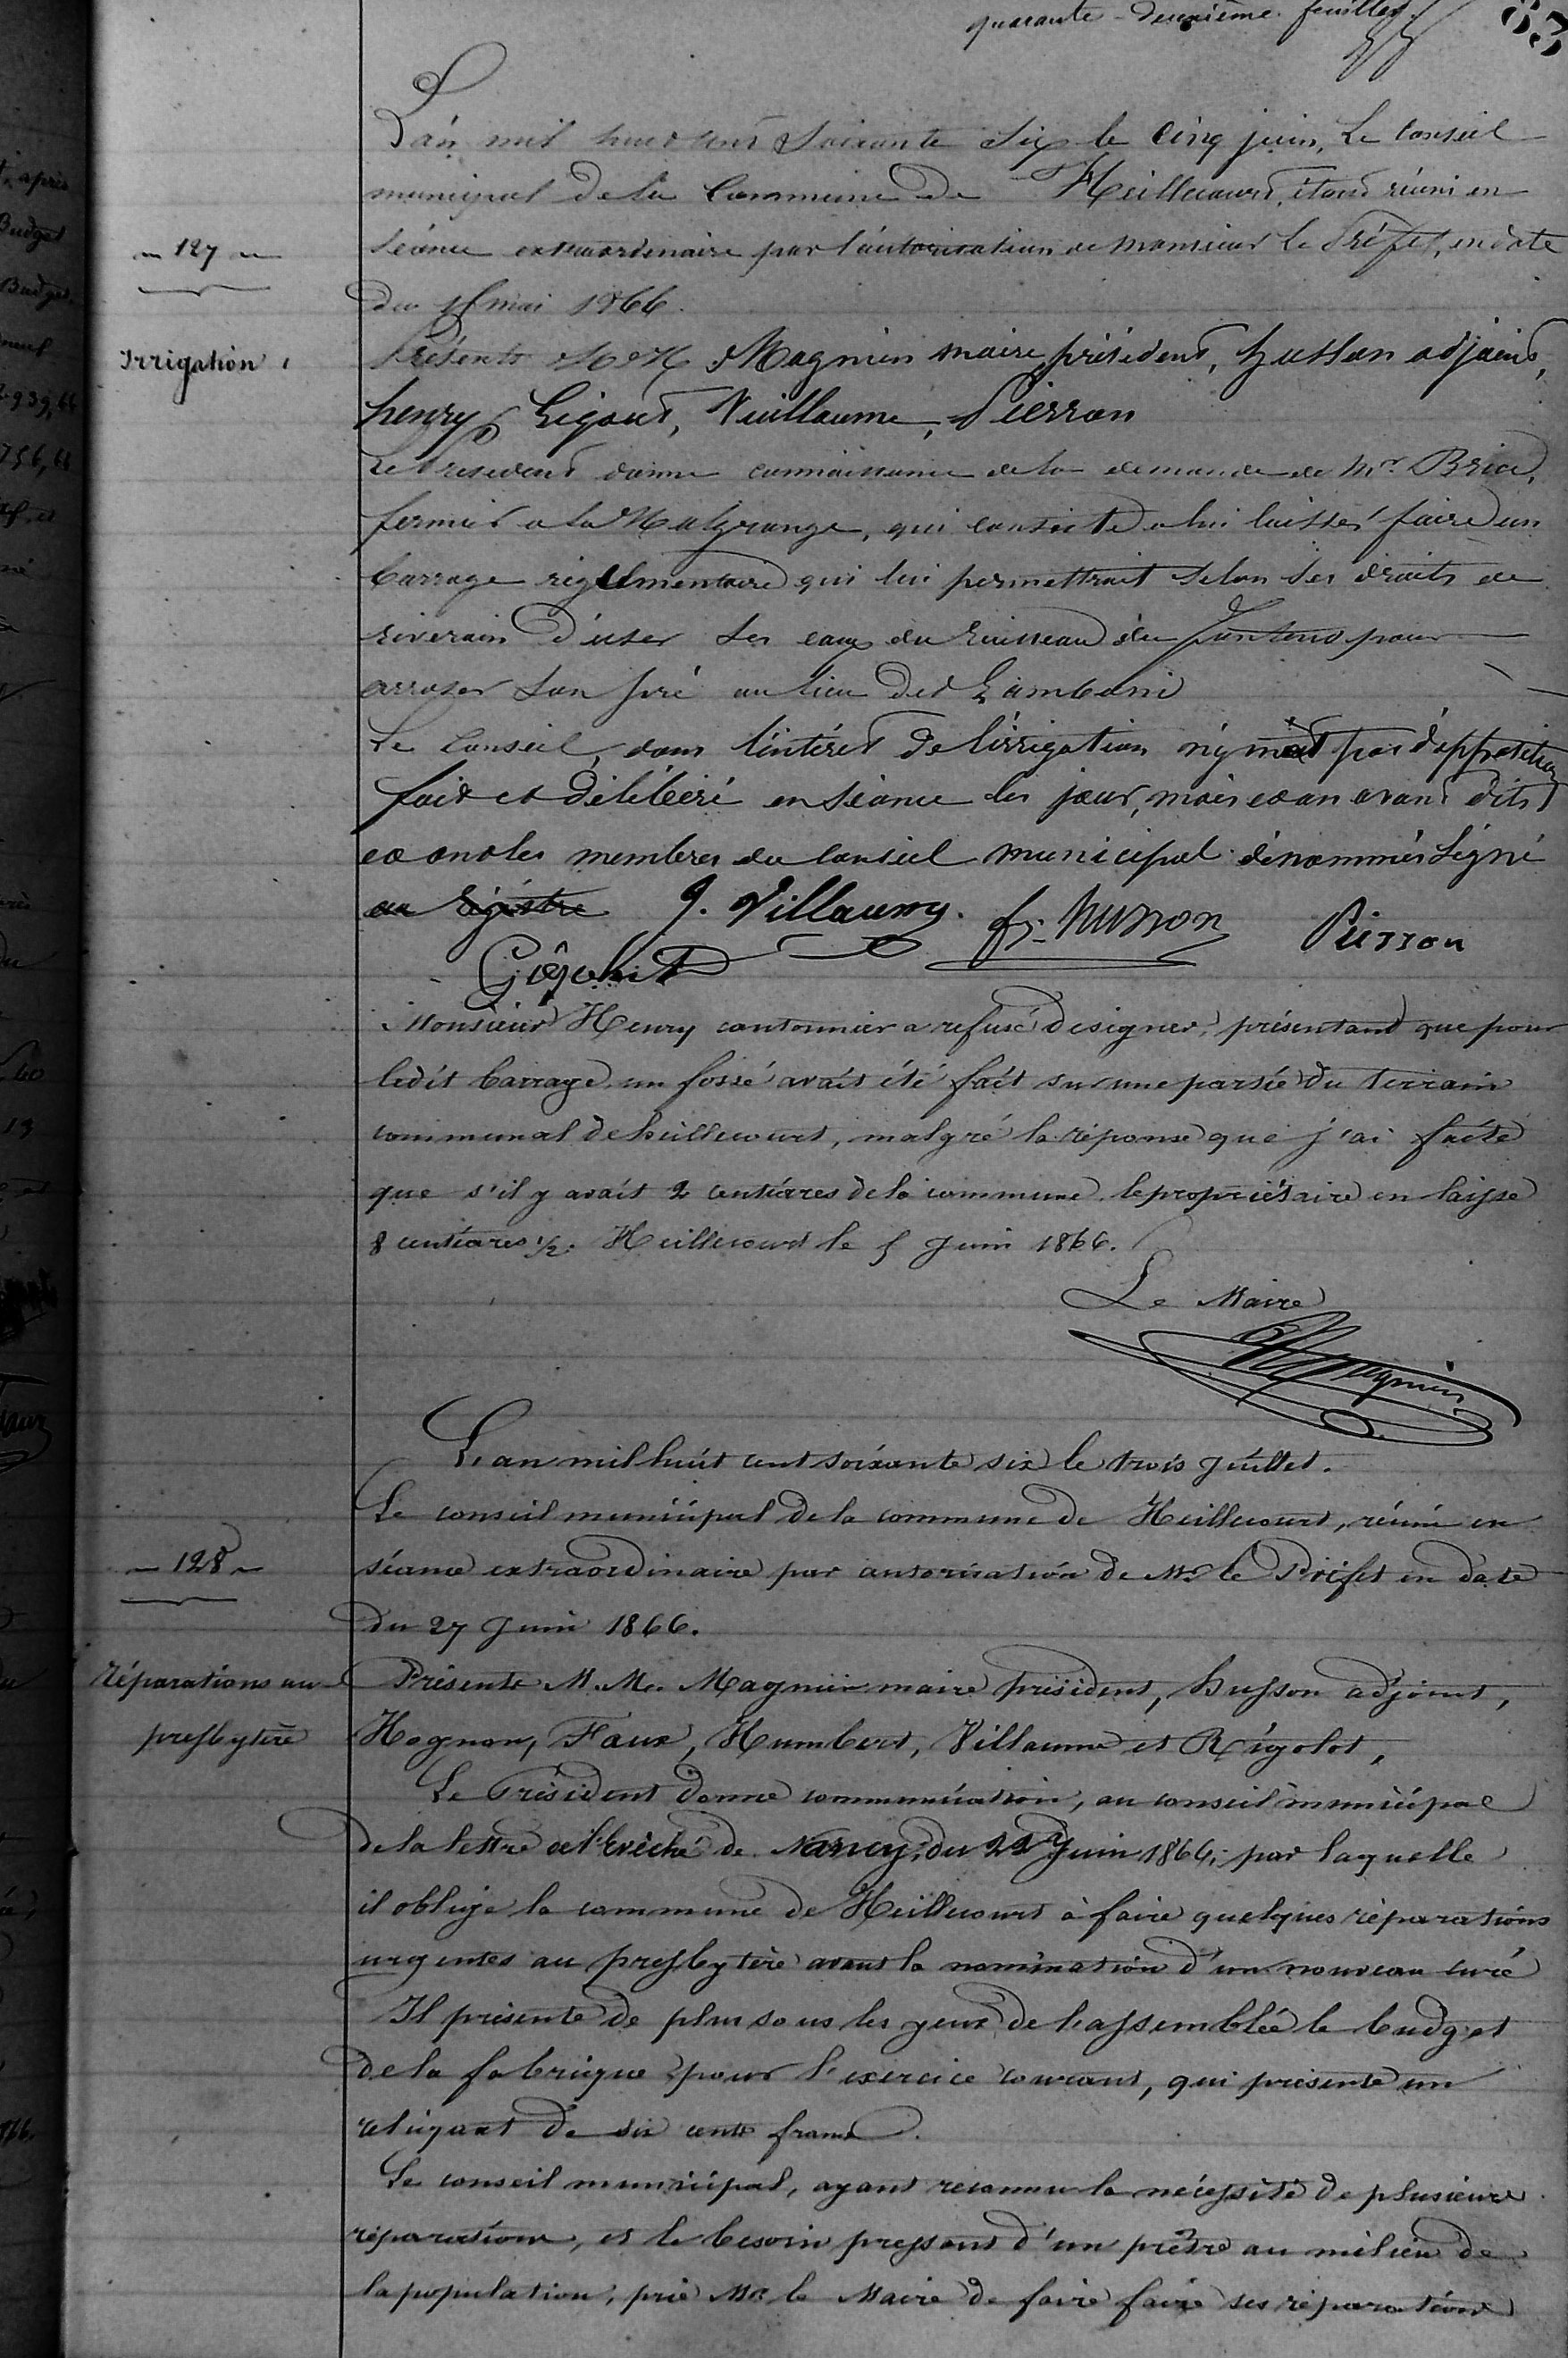 quarante-deuxième feuillet.
83
L'an mil huit cent soixante six le cinq juin, Le Conseil
municipal de la Commune de Heillecourt, étant réuni en
- 127 -
séance extraordinaire par l'autorisation de Monsieur le Préfet, en date
du 15 mai 1866.
Irrigation
Présents M M Magnien maire président, husson adjoint,
henry, Gigout, Vuillaume, Pierron
Le President donne connaissance de la demande de Mr. Brice,
fermier a la Malgrange, qui consiste a lui laisser faire un
barrage réglementaire qui lui permettrait selon ses droits de
riverain d'user des eaux du ruisseau du pour
arroser son pré au lieu dit
Le Conseil, dans l'intérêt de l'irrigation n'y met pas d'opposition
fait et délibéré en séance les jour, mois et an avant dits
et ont les membres du conseil municipal dénommés signé
au régistre J. Villaume. fs. husson Pierron
Gigout
Monsieur Henry cantonnier a refusé de signer, présentant que pour
ledit barrage, un fossé avait été fait sur une partie du terrain
communal de heillecourt, malgré la réponse que j'ai faite
que s'il y avait 2 centiares de la commune le propriétaire en laisse
8 centiares 1/2. Heillecourt le 5 Juin 1866.
Le Maire
Magnien
L'an mil huit cent soixante six le trois Juillet.
Le conseil municipal de la commune de Heillecourt, réuni en
- 128 -
séance extraordinaire par autorisation de Mr le Préfet en date
du 27 Juin 1866.
réparations au
presbytère
Présents M. M. Magnien maire président, husson adjoint,
Hognon, Faux, Humbert, Villaume et Rigolot,
Le Président donne communication, au conseil municipal
de la lettre de l'Evêché de Nancy, du 22 Juin 1866, par laquelle
il oblige la commune de Heillecourt à faire quelques réparations
urgentes au presbytère avant la nomination d'un nouveau curé
Il présente de plus sous les yeux de l'assemblée le budget
de la fabrique pour l'exercice courant, qui présente un
reliquat de six cents francs.
Le conseil municipal, ayant reconnu la nécessité de plusieurs
réparations, et le besoin pressant d'un prêtre au milieu de
la population, prie Mr le Maire de faire faire ses réparations